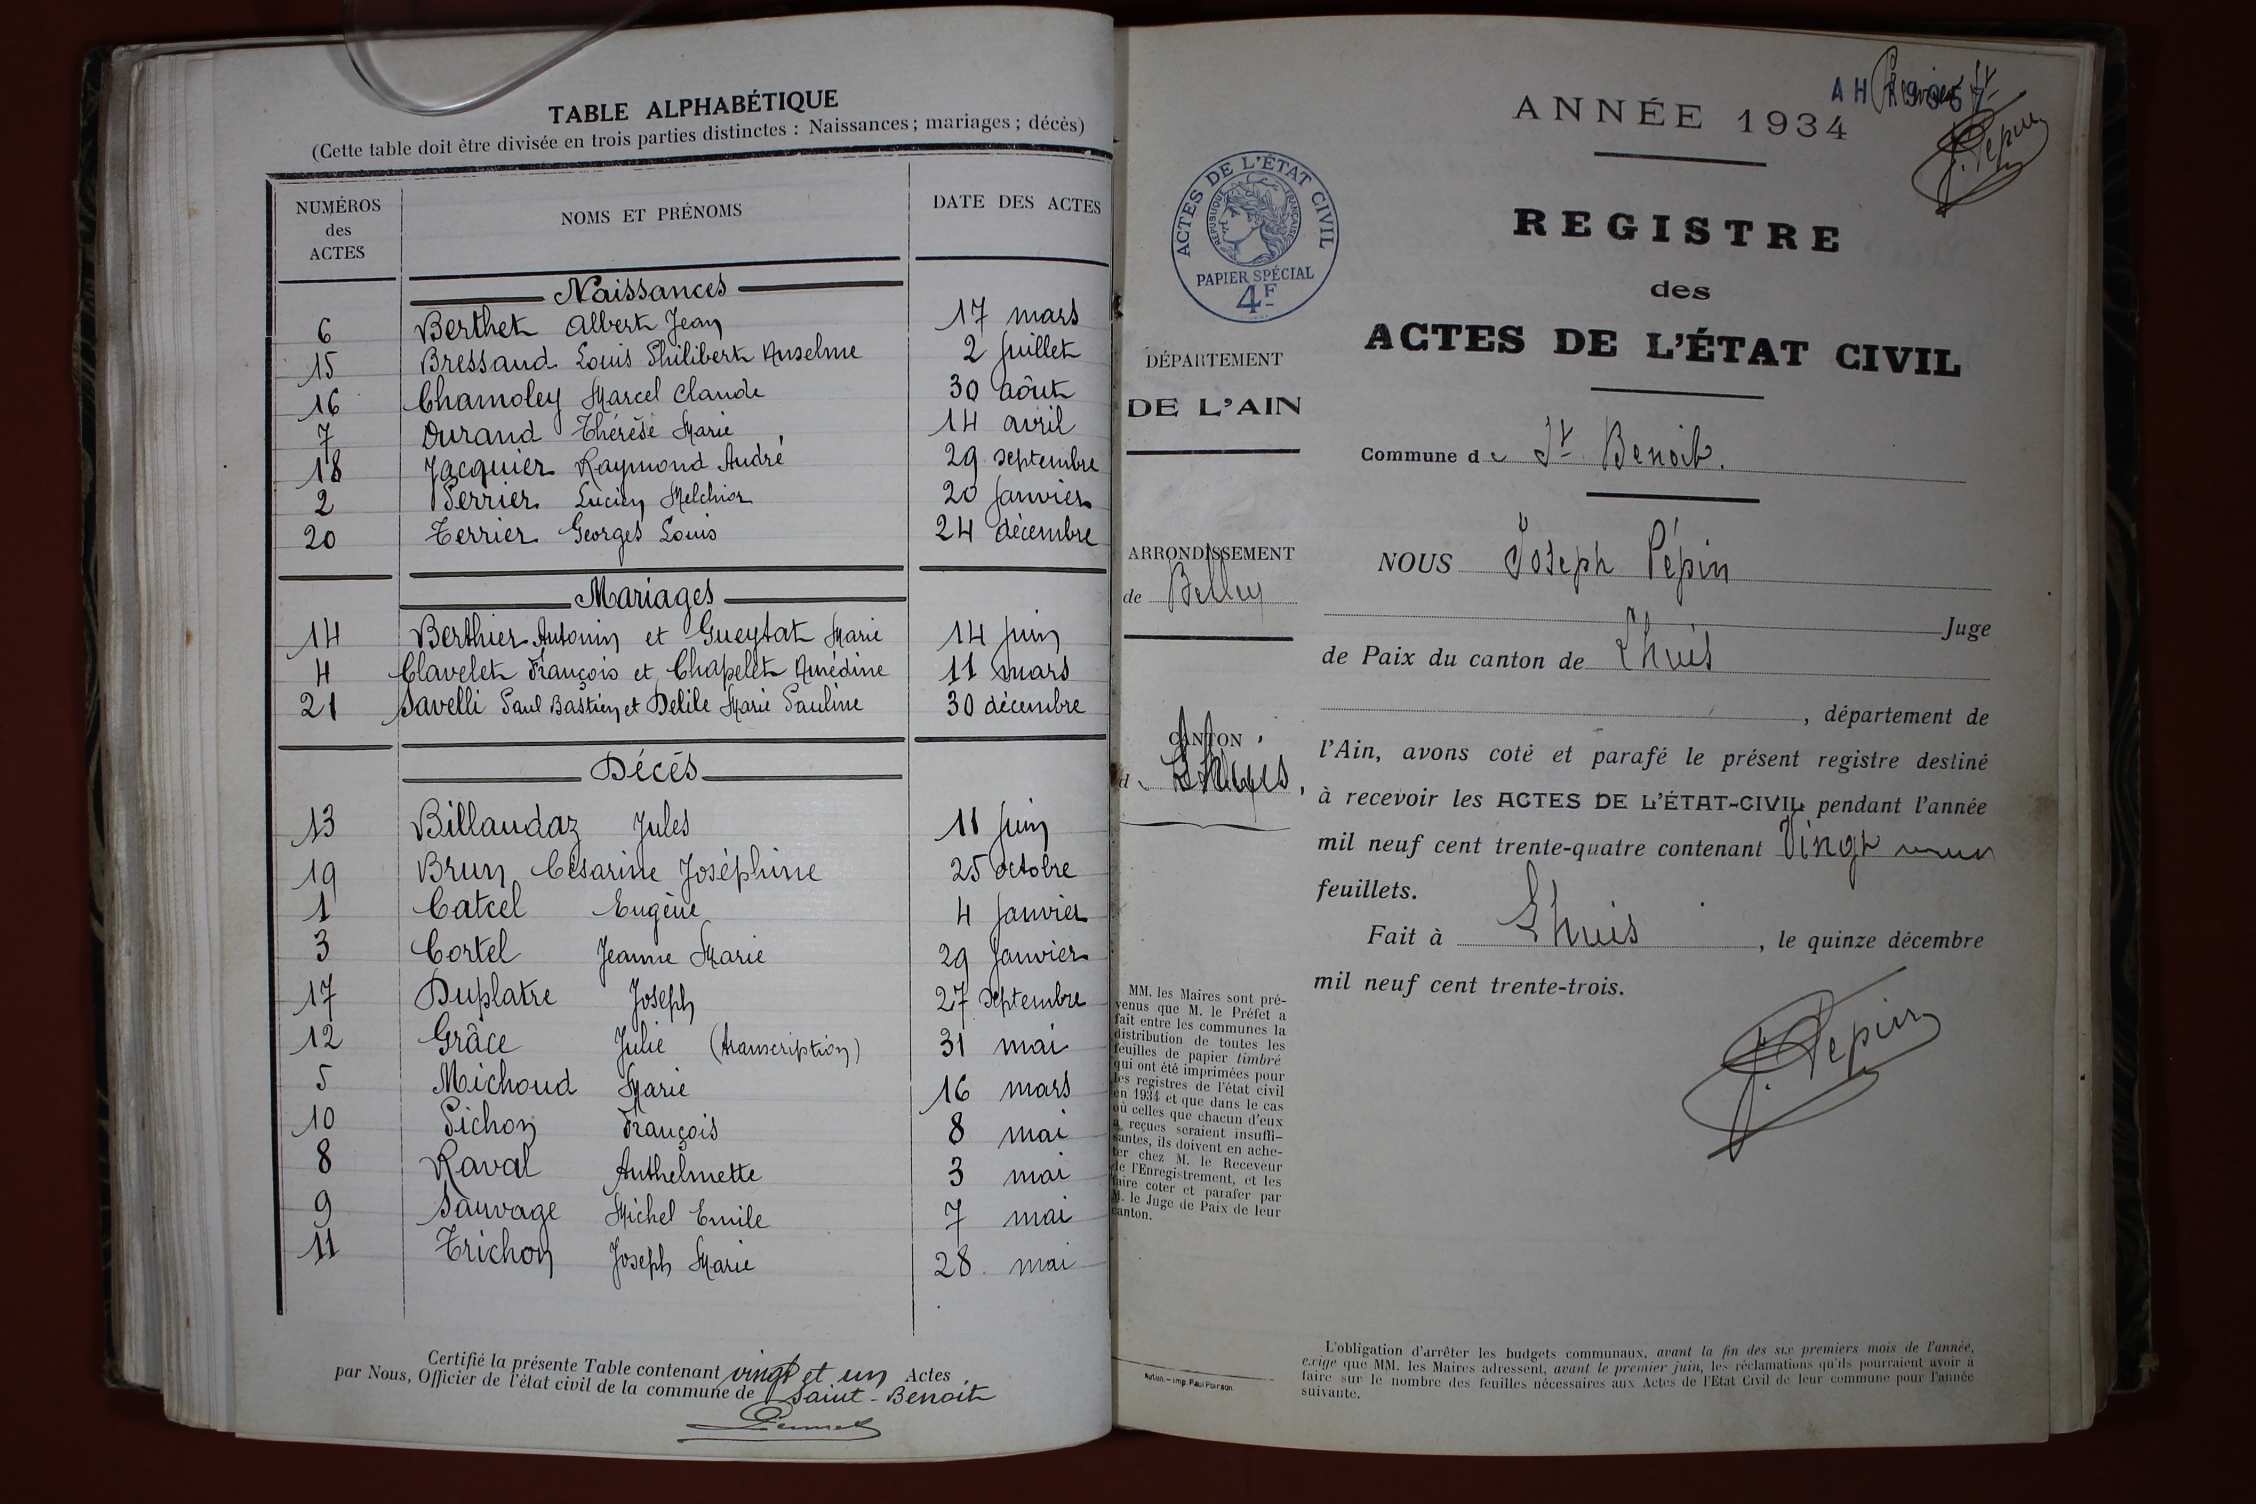 TABLE ALPHABÉTIQUE
(Cette table doit être divisée en trois parties distinctes : Naissances ; mariages ; décès)
NUMÉROS des ACTES NOMS ET PRÉNOMS DATE DES ACTES
Naissances
6 Berthet Albert Jean 17 mars
15 Bressand Louis Philibert Anselme 2 Juillet
16 Chamoley Marcel Claude 30 août
7 Durand Thérèse Marie 14 avril
18 Jacquier Raymond André 29 septembre
2 Perrier Lucien Melchior 20 Janvier
20 Terrier Georges Louis 24 décembre
Mariages
14 Berthier Antonin et Gueytat Marie 14 Juin
4 Clavelet François et Chapelet Amédine 11 mars
21 Savelli Paul Bastien et Delile Marie Pauline 30 décembre
Décès
13 Billaudaz Jules 11 Juin
19 Brun Césarine Joséphine 25 octobre
1 Catcel Eugène 4 Janvier
3 Cortel Jeanne Marie 29 Janvier
17 Duplatre Joseph 27 septembre
12 Grâce Julie (transcription) 31 mai
5 Michoud Marie 16 mars
10 Pichon François 8 mai
8 Raval Anthelmette 3 mai
9 Sauvage Michel Emile 7 mai
11 Trichon Joseph Marie 28 mai
Certifié la présente Table contenant vingt et un Actes
par Nous, Officier de l'état civil de la commune de Saint-Benoit
AH
J. Pépin
ANNÉE 1934
ACTES DE L'ÉTAT CIVIL
RÉPUBLIQUE FRANÇAISE
PAPIER SPÉCIAL
4F
DÉPARTEMENT
DE L'AIN
ARRONDISSEMENT
de Belley
CANTON
d Lhuis
MM. les Maires sont pré-
venus que M. le Préfet a
fait entre les communes la
distribution de toutes les
feuilles de papier timbré
qui ont été imprimées pour
les registres de l'état civil
en 1934 et que dans le cas
où celles que chacun d'eux
a reçues seraient insuffi-
santes, ils doivent en ache-
ter chez M. le Receveur
de l'Enregistrement, et les
faire coter et parafer par
M. le Juge de Paix de leur
canton.
Imp. Paul Poirson
REGISTRE
des
ACTES DE L'ÉTAT CIVIL
Commune de St Benoit.
NOUS Joseph Pépin
Juge
de Paix du canton de Lhuis
, département de
l'Ain, avons coté et parafé le présent registre destiné
à recevoir les ACTES DE L'ÉTAT-CIVIL pendant l'année
mil neuf cent trente-quatre contenant Vingt
feuillets.
Fait à Lhuis , le quinze décembre
mil neuf cent trente-trois.
J. Pépin
L'obligation d'arrêter les budgets communaux, avant la fin des six premiers mois de l'année,
exige que MM. les Maires adressent, avant le premier juin, les réclamations qu'ils pourraient avoir à
faire sur le nombre des feuilles nécessaires aux Actes de l'Etat Civil de leur commune pour l'année
suivante.